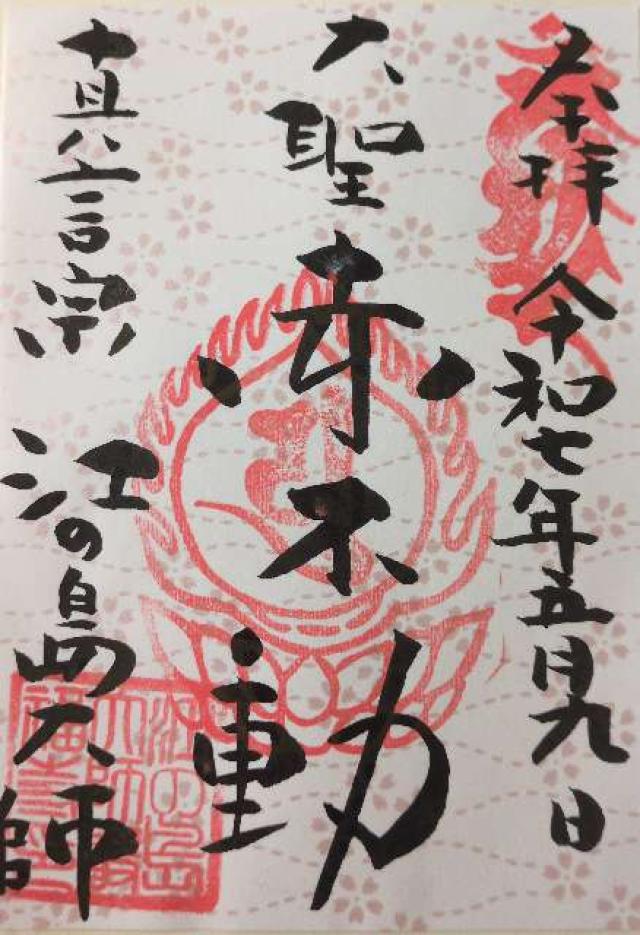 奉拝 令和七年五月九日
大聖赤不動
真言宗 江の島大師